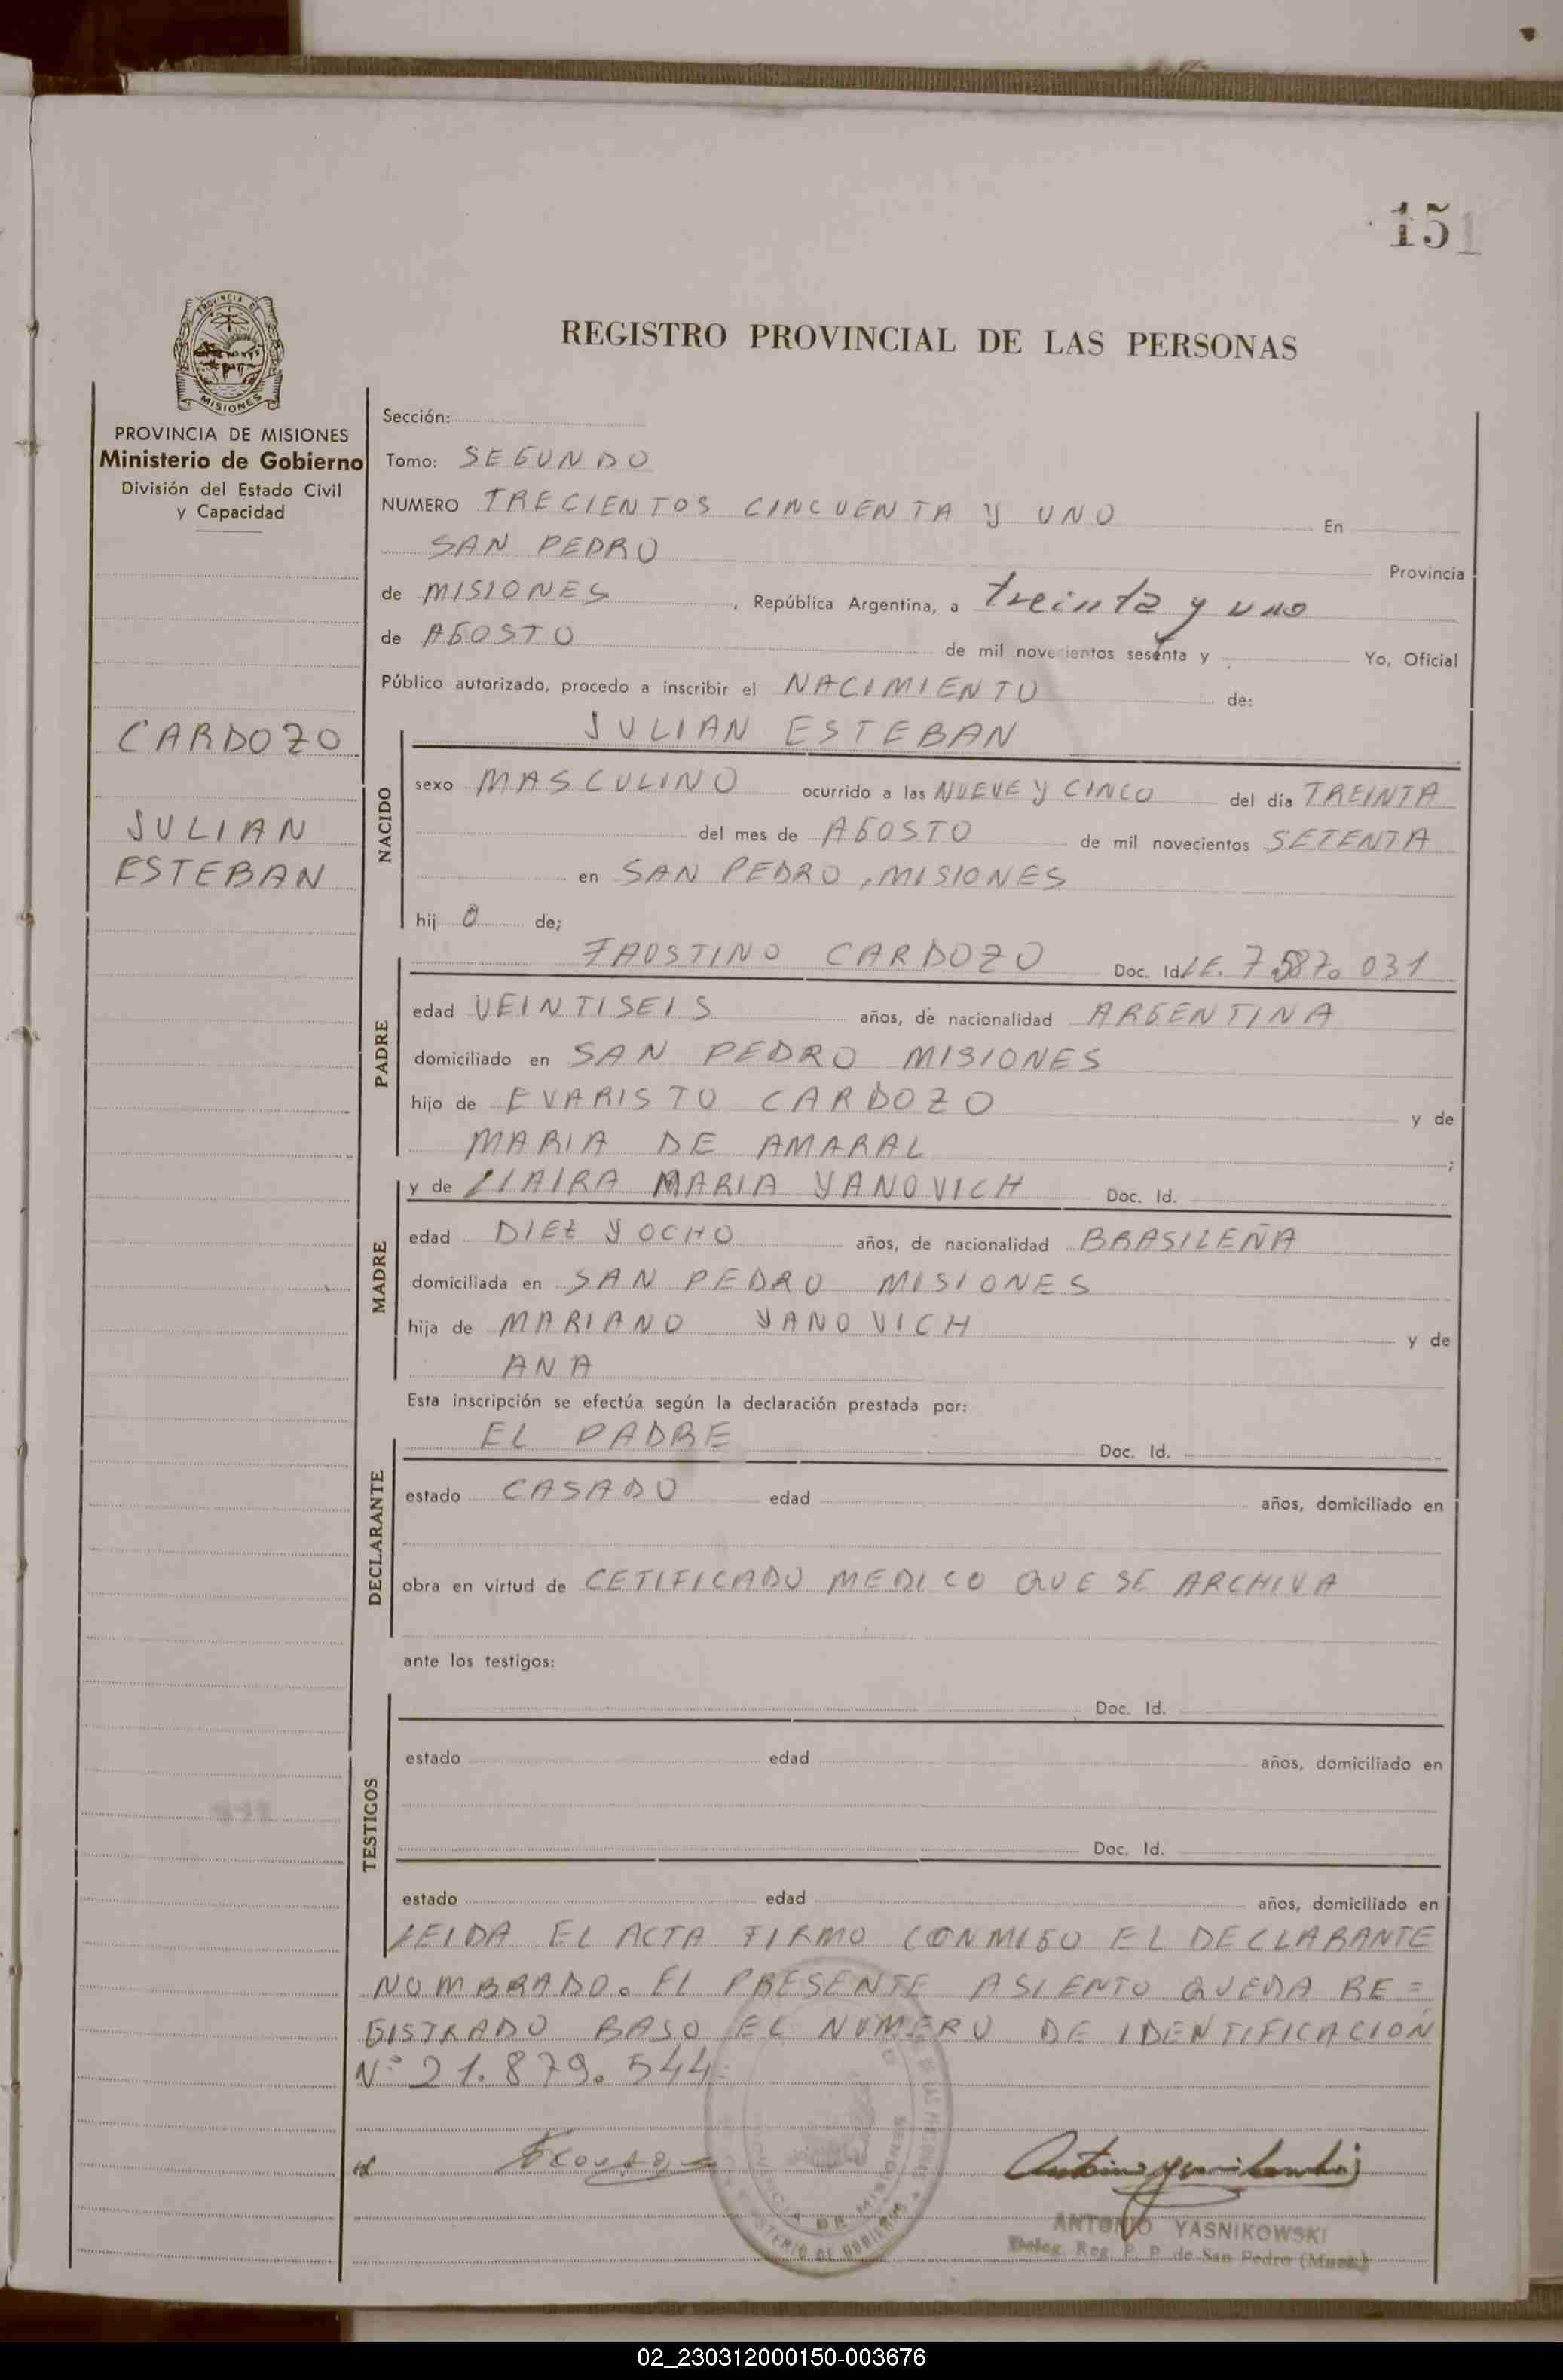 151
REGISTRO PROVINCIAL DE LAS PERSONAS
PROVINCIA DE
MISIONES
PROVINCIA DE MISIONES
Ministerio de Gobierno
División del Estado Civil
y Capacidad
CARDOZO
JULIAN
ESTEBAN
Sección:
Tomo: SEGUNDO
NUMERO TRECIENTOS CINCUENTA Y UNO En
SAN PEDRO Provincia
de MISIONES, República Argentina, a treinta y uno
de AGOSTO de mil novecientos sesenta y Yo, Oficial
Público autorizado, procedo a inscribir el NACIMIENTO de:
JULIAN ESTEBAN
NACIDO
sexo MASCULINO ocurrido a las NUEVE Y CINCO del día TREINTA
del mes de AGOSTO de mil novecientos SETENTA
en SAN PEDRO, MISIONES
hij O de;
FAUSTINO CARDOZO Doc. Id. LE. 7.587.031
PADRE
edad VEINTISEIS años, de nacionalidad ARGENTINA
domiciliado en SAN PEDRO MISIONES
hijo de EVARISTO CARDOZO y de
MARIA DE AMARAL ;
y de MARIA YANOVICH Doc. Id.
MADRE
edad DIEZ Y OCHO años, de nacionalidad BRASILEÑA
domiciliada en SAN PEDRO MISIONES
hija de MARIANO YANOVICH y de
ANA
Esta inscripción se efectúa según la declaración prestada por:
EL PADRE Doc. Id.
DECLARANTE
estado CASADO edad años, domiciliado en
obra en virtud de CETIFICADO MEDICO QUE SE ARCHIVA
ante los testigos:
Doc. Id.
TESTIGOS
estado edad años, domiciliado en
Doc. Id.
estado edad años, domiciliado en
LEIDA EL ACTA FIRMO CONMIGO EL DECLARANTE
NOMBRADO. EL PRESENTE ASIENTO QUEDA RE=
GISTRADO BAJO EL NUMERO DE IDENTIFICACION
Nº 21.879.544.
ANTONIO YASNIKOWSKI
Deleg. Reg. P. P. de San Pedro (Mnes.)
02_230312000150-003676